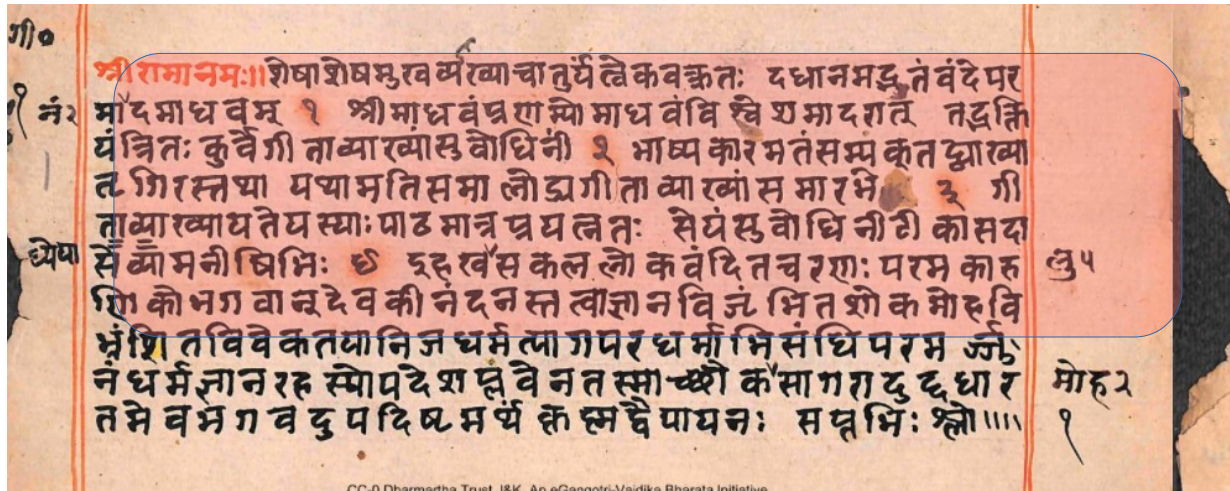 गी०
श्रीरामानमः॥शेषाशेषमुखव्यख्याचातुर्यंत्वेकवक्रतः दधानमद्भुतंवंदेपर
१ नं२ मादमाधवम् १ श्रीमाधवंप्रणम्योमाधवंविश्वेशमादरात् तद्भक्ति
यंत्रितः कुर्वेगीताव्याख्यांसुबोधिनीं २ भाष्यकारमतंसम्यकतद्व्याख्या
तृगिरस्तथा यथामतिसमालोड्यगीताव्याख्यांसमारभे ३ गी
ताव्याख्यायतेयस्याः पाठमात्रप्रयत्नतः सेयंसुबोधिनीटीकासदा
ध्येया सेव्यामनीषिभिः ४ इहखसकललोकवंदितचरणः परमकारु लु५
णिकोभगवान्देवकीनंदनस्तत्वाज्ञानविजृंभितशोकमोहवि
भ्रंशितविवेकतयानिजधर्मत्यागपरधर्माभिसंधिपरमर्जु
नंधर्मज्ञानरहस्योपदेशप्लवेनतस्माच्छोकसागरादुद्दधार मोह२
तमेवभगवदुपदिष्टमर्थंकृष्णद्वैपायनः सप्तभिः श्लो १
CC-0 Dharmartha Trust J&K. An eGangotri-Vaidika Bharata Initiative